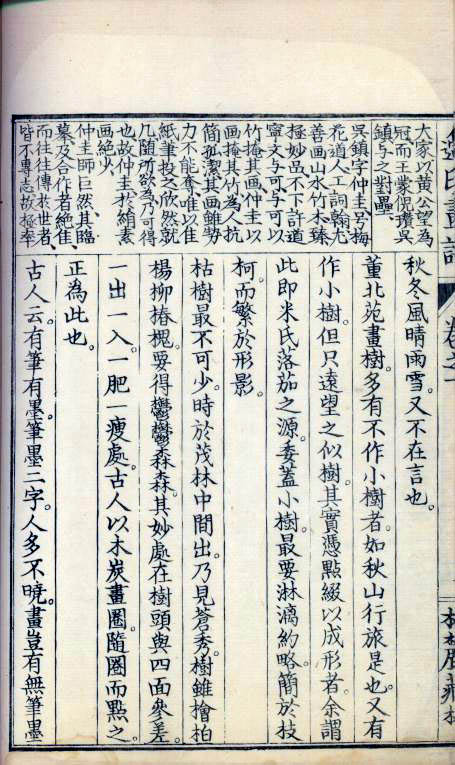 大家以黄公望為
冠而王蒙倪瓚吳
鎮与之對壘
吳鎮字仲圭号梅
花道人工詞翰尤
善画山水竹木臻
極妙品不下許道
寧文与可与可以
竹掩其画仲圭以
画掩其竹為人抗
簡孤潔其画雖勢
力不能奪唯以佳
紙筆投之欣然就
几隨所欲為乃可得
也故仲圭於絹素
画絶少
仲圭師巨然其臨
摹及合作者絶佳
而往往傳於世者
皆不專志故極率
秋冬風晴雨雪。又不在言也。
董北苑畫樹。多有不作小樹者。如秋山行旅是也。又有
作小樹。但只遠望之似樹。其實憑點綴以成形者。余謂
此即米氏落茄之源。委蓋小樹。最要淋漓約略。簡於枝
柯。而繁於形影。
枯樹最不可少。時於茂林中間出。乃見蒼秀。樹雖檜柏
楊柳椿槐。要得鬱鬱森森。其妙處在樹頭與四面參差。
一出一入。一肥一瘦處。古人以木炭畫圈。隨圈而點之。
正為此也。
古人云。有筆有墨。筆墨二字。人多不曉。畫豈有無筆墨